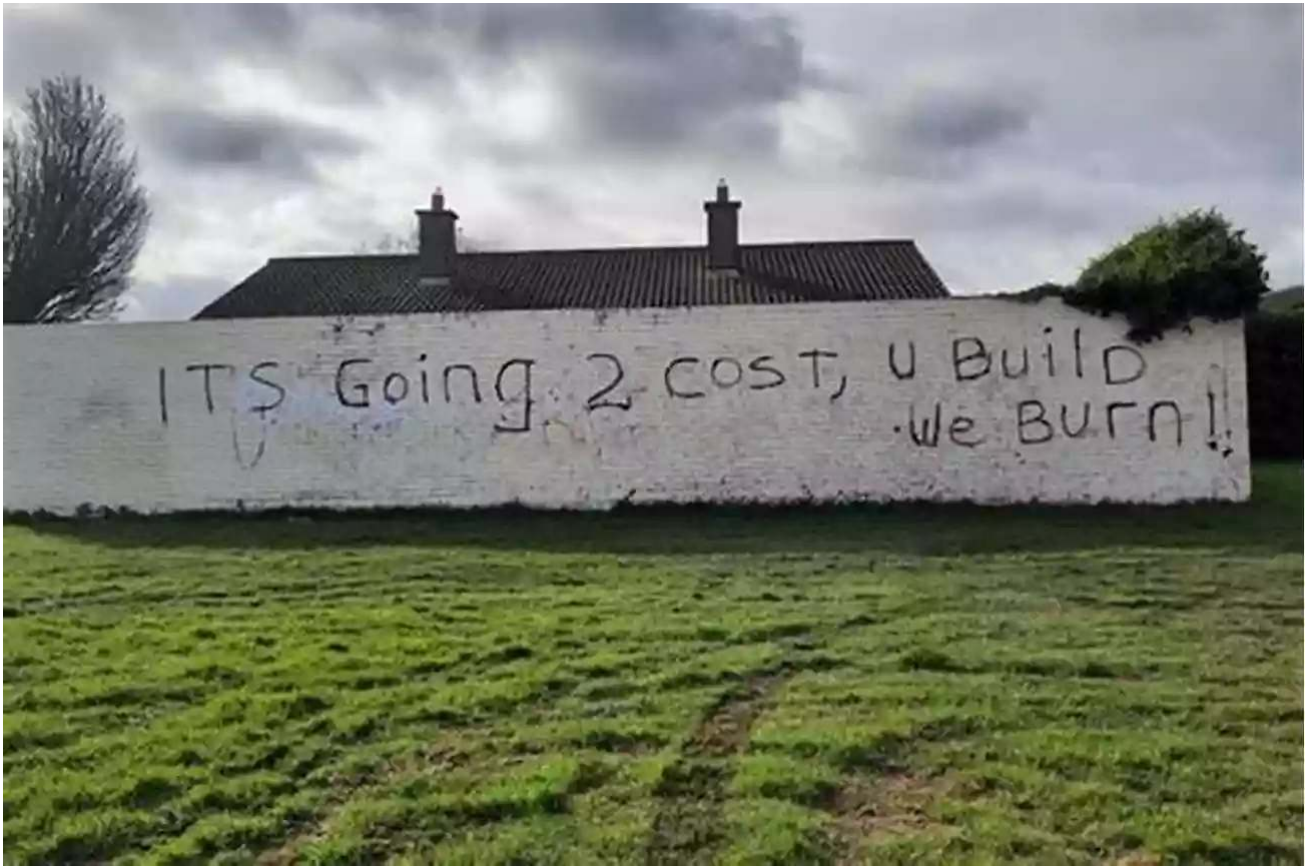 ITS Going 2 COST, U BuilD
We Burn!!